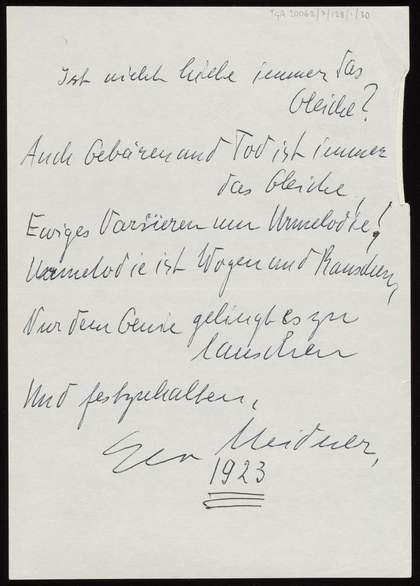 TGA 20062/3/128/1/30
Ist nicht Liebe immer das
Gleiche?
Auch Gebären und Tod ist immer
das Gleiche!
Ewiges Variieren um Urmelodie!
Urmelodie ist Wogen und Rauschen,
Nur dem Genie gelingt es zu
lauschen
Und festzuhalten,
Else Meidner,
1923